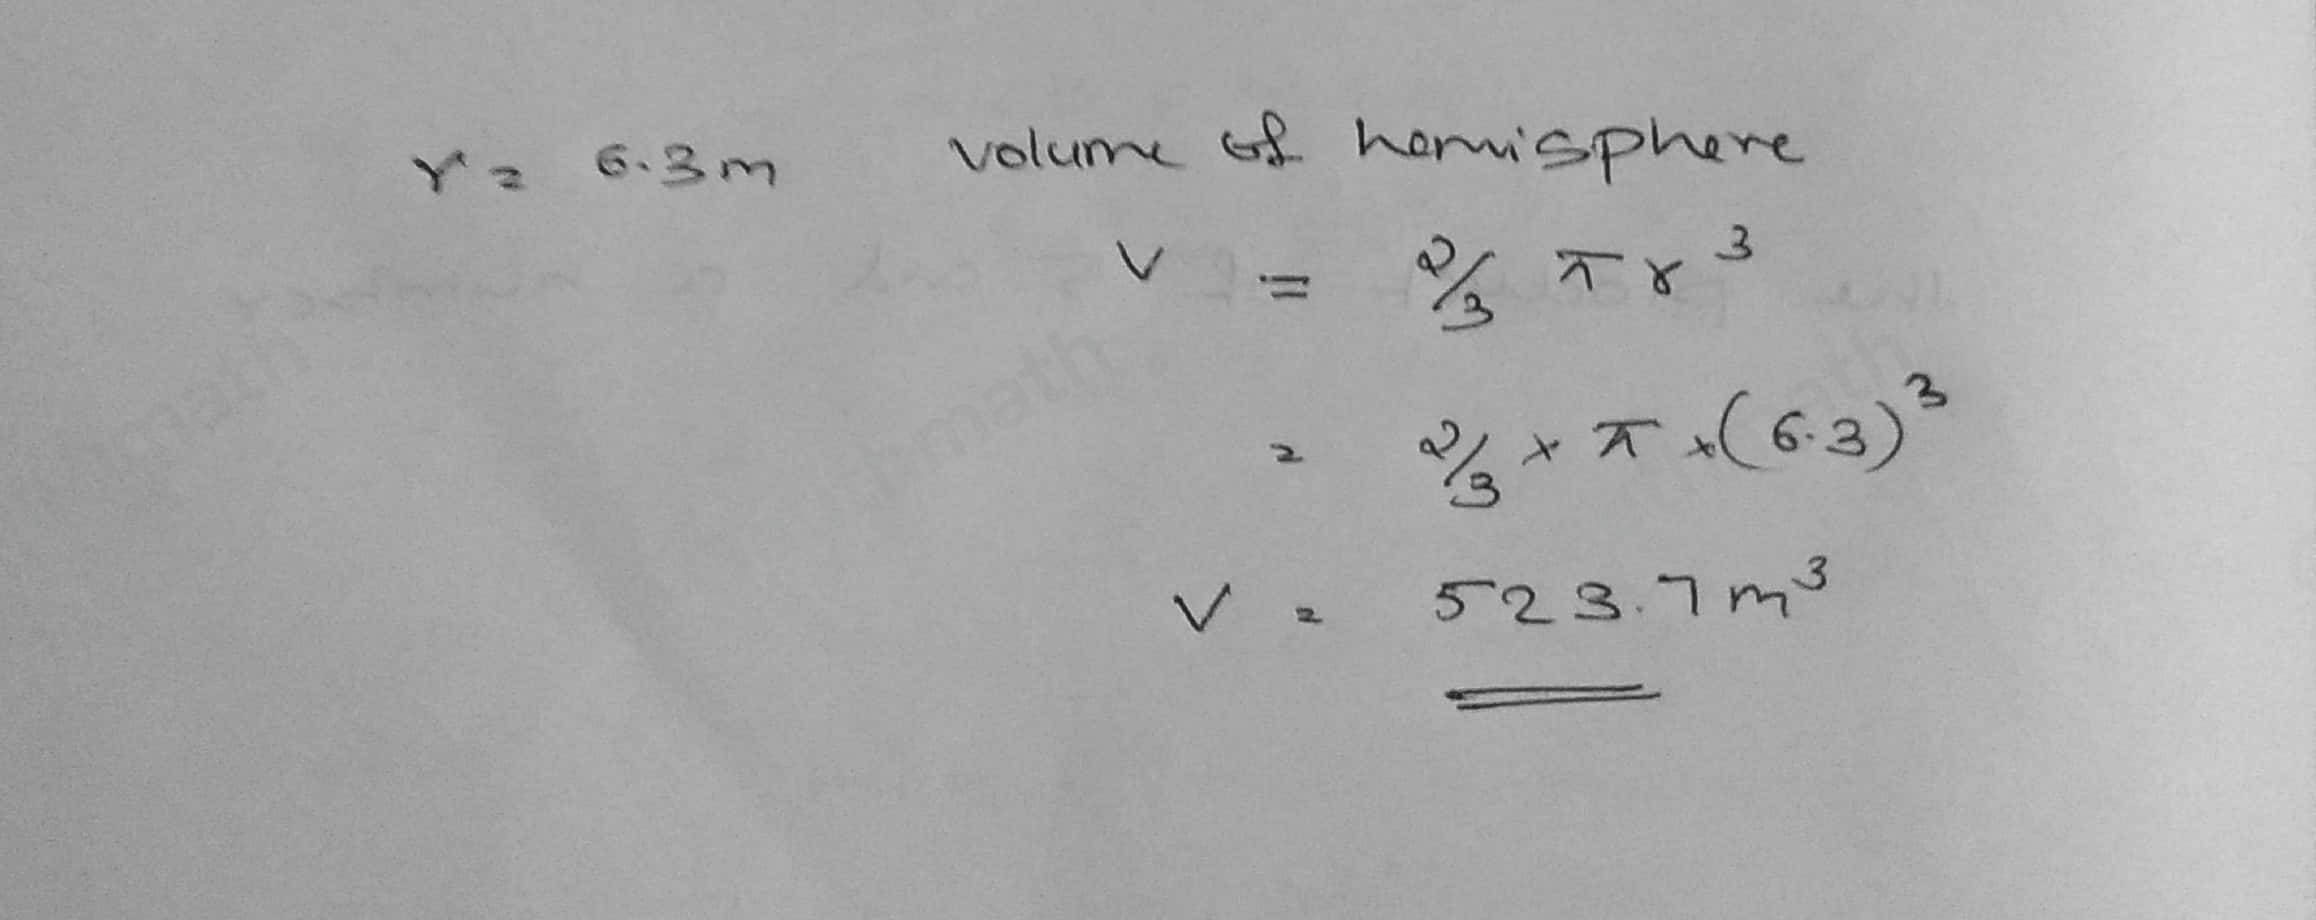 r = 6.3m volume of hemisphere
V = 2/3 π r³
= 2/3 × π × (6.3)³
V = 523.7 m³